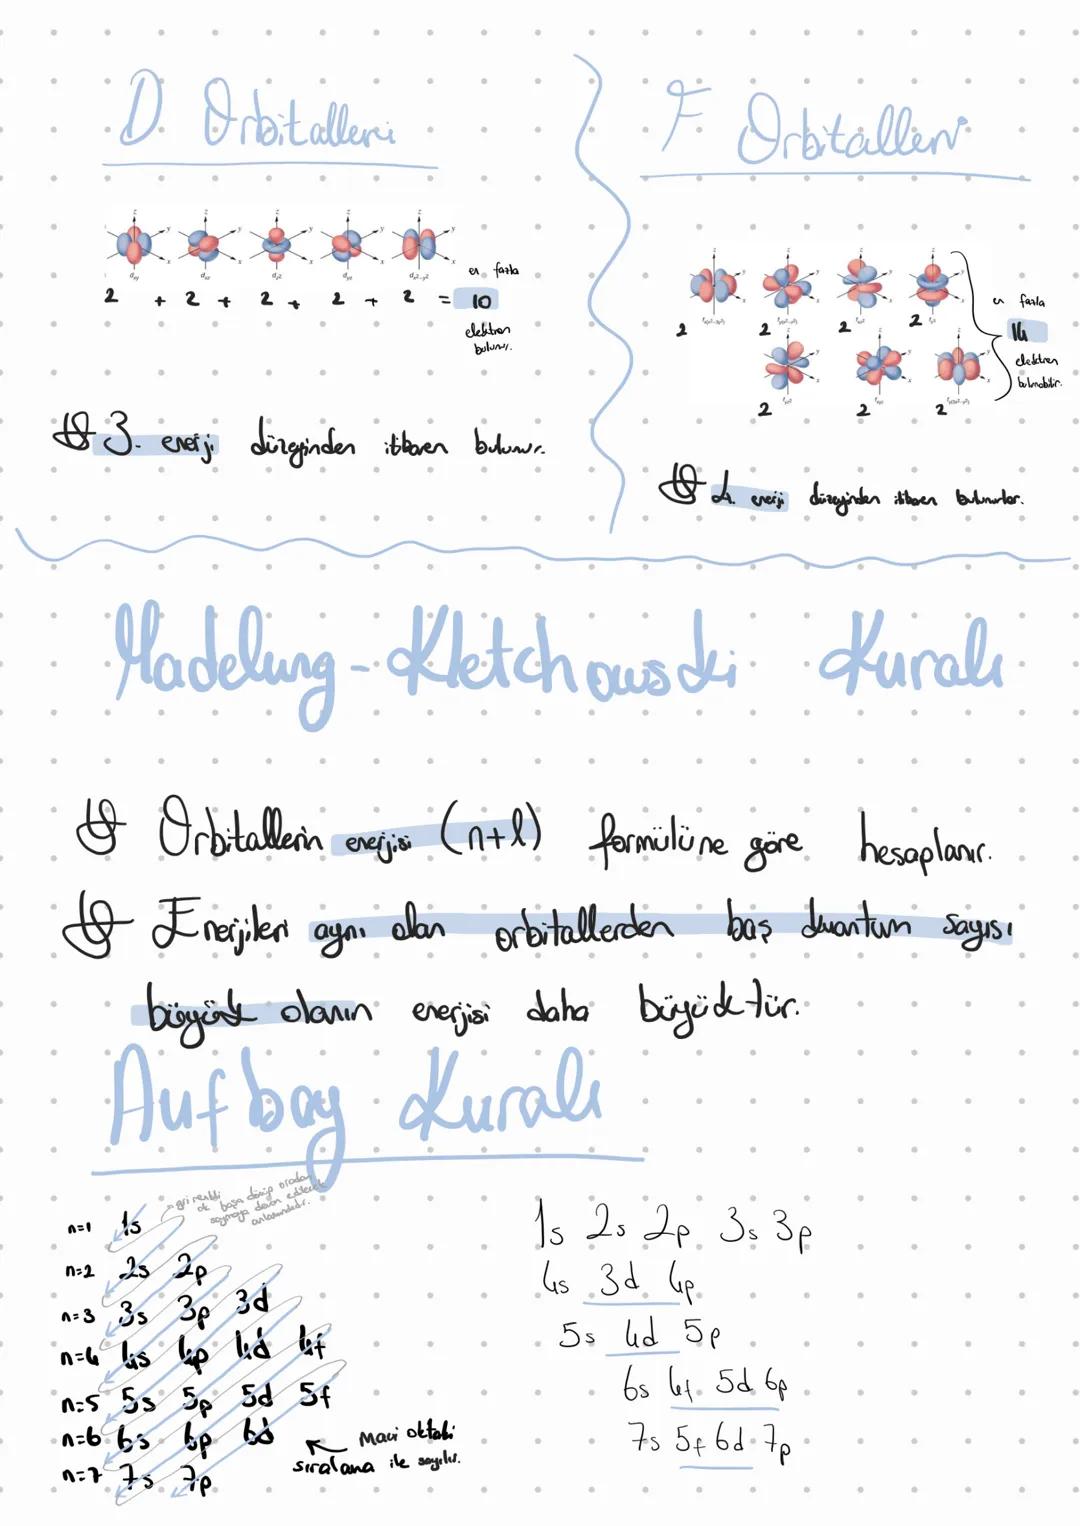 D Orbitalleri
2 + 2 + 2 + 2 + 2 = 10
en fazla
elektron
bulunur.
3. enerji düzeyinden itibaren bulunur.
F Orbitalleri
2 2 2 2
2 2 2
en fazla
14
elektron
bulunabilir.
4. enerji düzeyinden itibaren bulunurlar.
Madelung-Kletchowski Kuralı
Orbitallerin enerjisi (n+l) formülüne göre hesaplanır.
Enerjileri aynı olan orbitallerden baş kuantum sayısı
büyük olanın enerjisi daha büyüktür.
Aufbay Kuralı
gri renkli
ok başa dönüp oradan
saymaya devam edilecek
anlamındadır.
n=1 1s
n=2 2s 2p
n=3 3s 3p 3d
n=4 4s 4p 4d 4f
n=5 5s 5p 5d 5f
n=6 6s 6p 6d
n=7 7s 7p
Mavi oktaki
sıralama ile sayılır.
1s 2s 2p 3s 3p
4s 3d 4p
5s 4d 5p
6s 4f 5d 6p
7s 5f 6d 7p